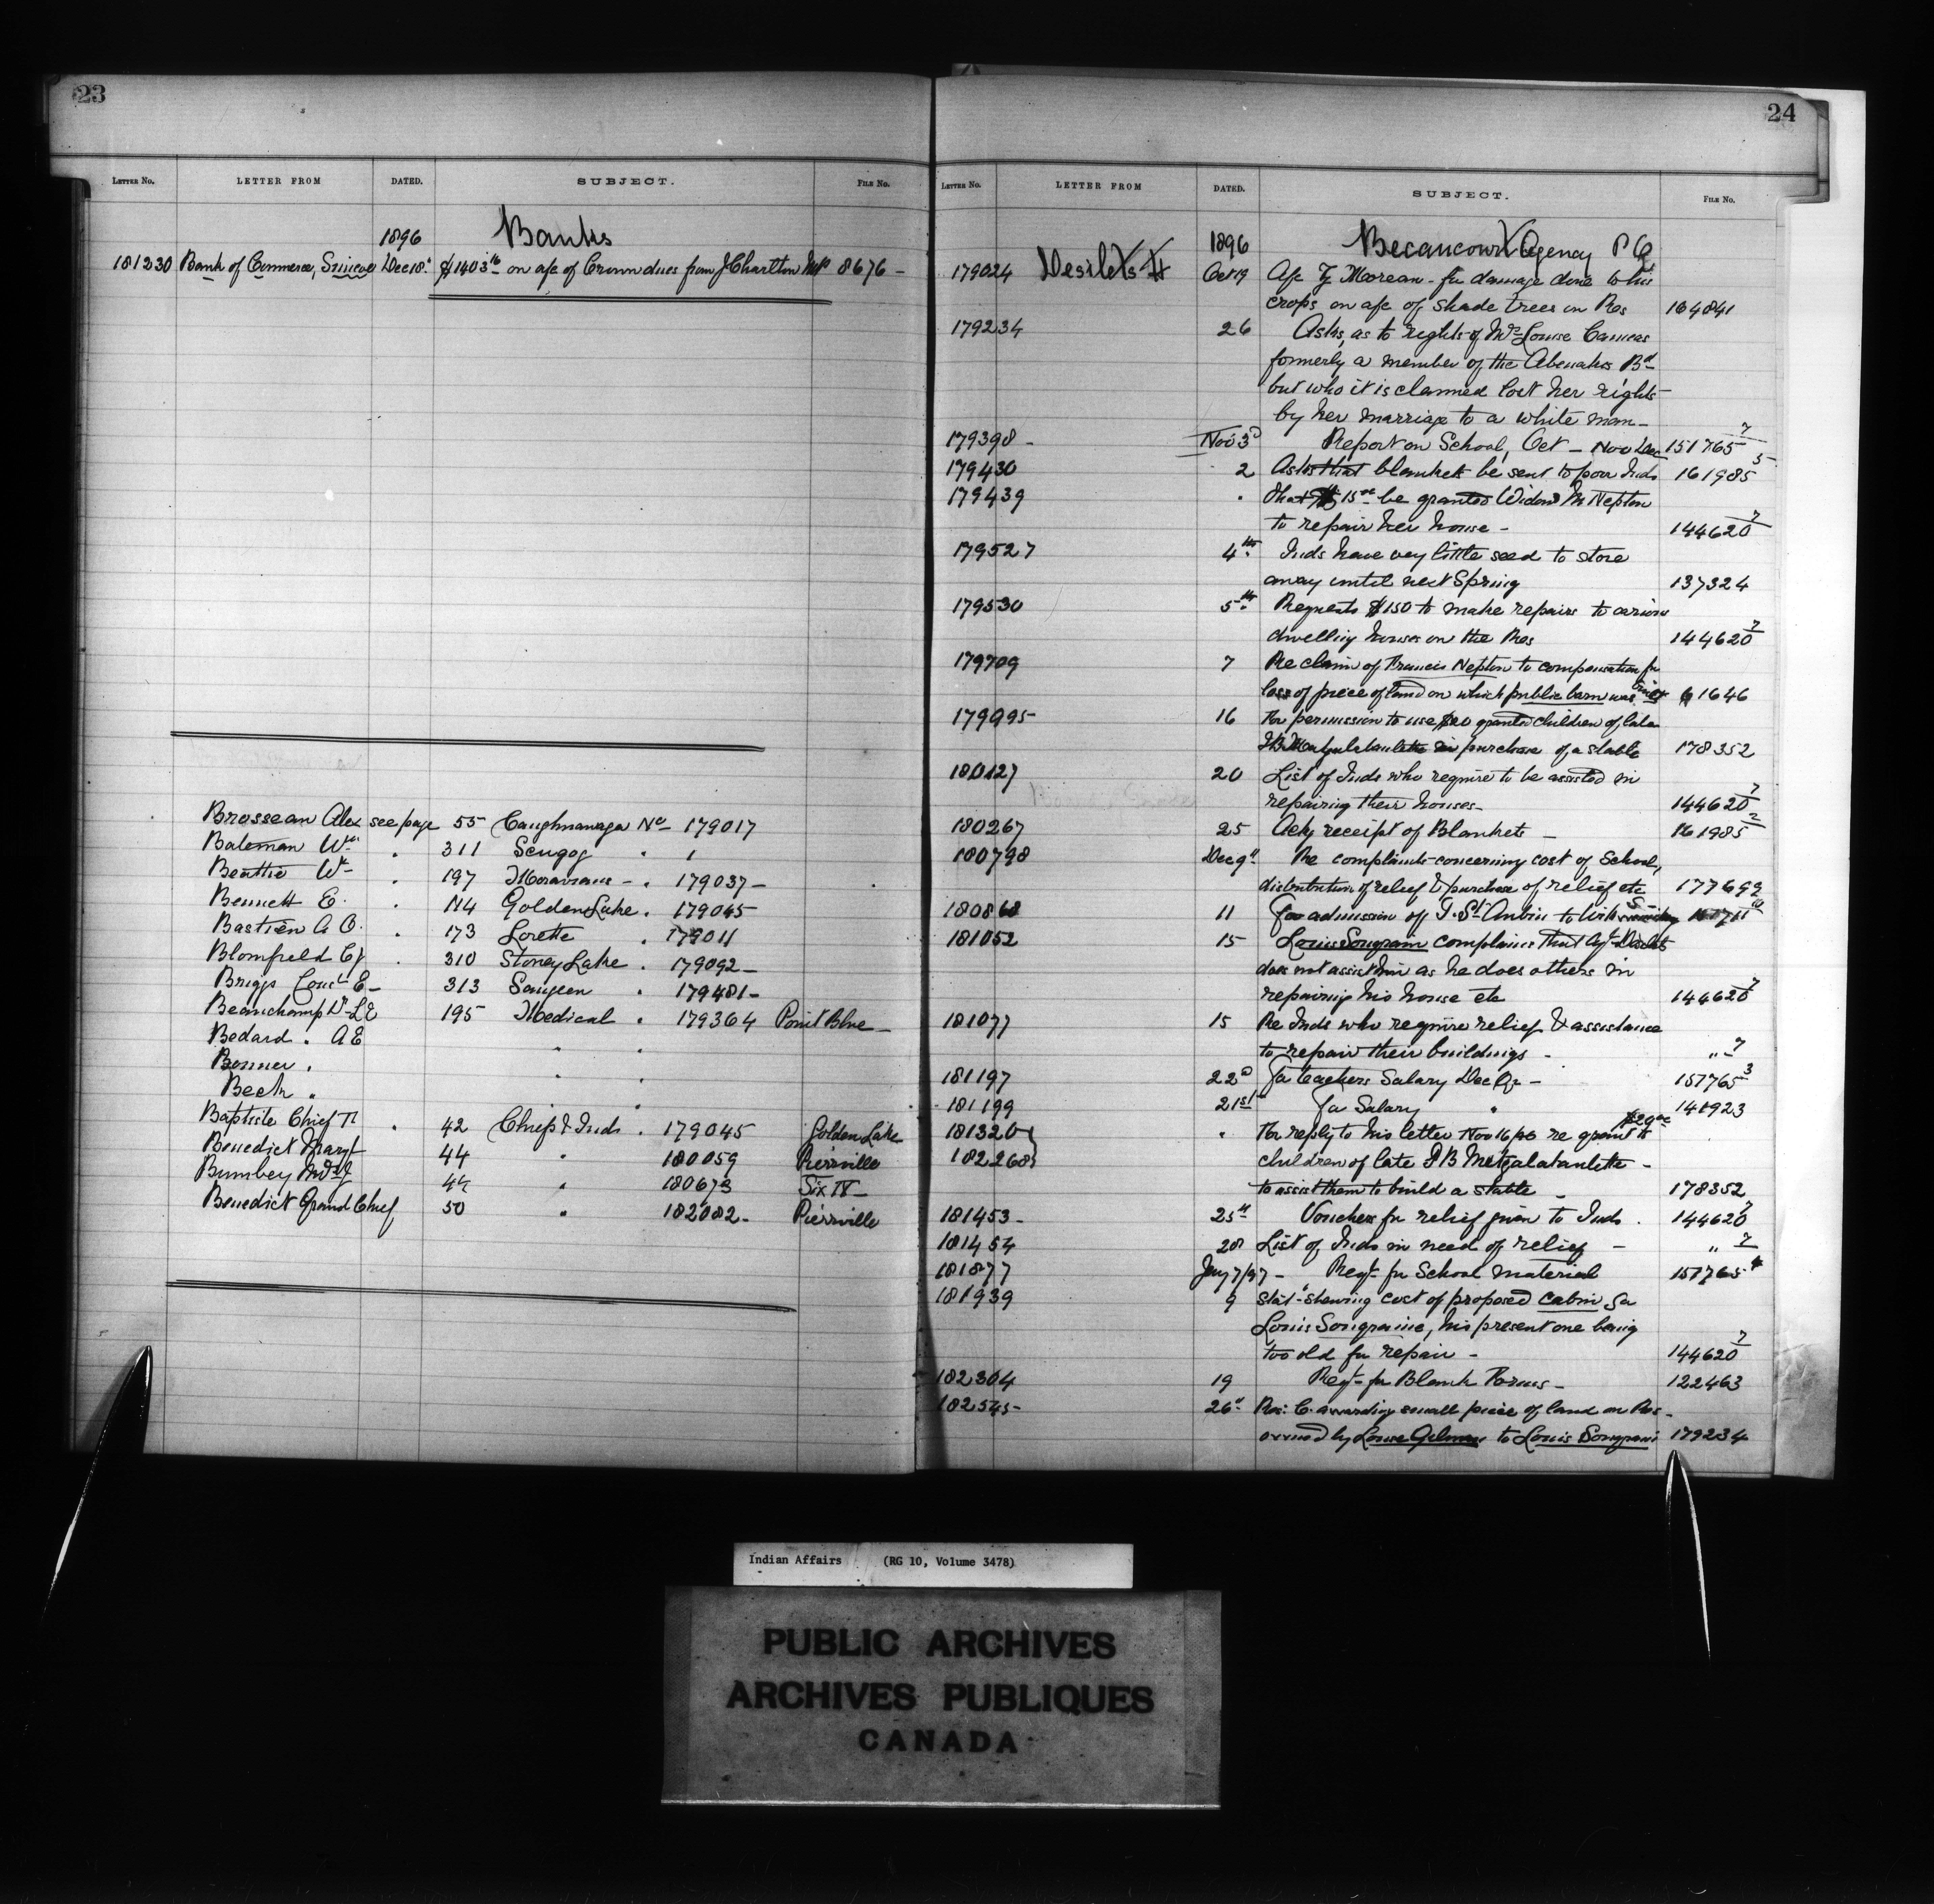 23
LETTER NO. LETTER FROM DATED. SUBJECT. FILE No.
1896 Banks
181230 Bank of Commerce, Simcoe Dec 18" $1403 16 on a/c of Crown dues from J Charlton MP 8676 -
Brosseau Alex see page 55 Caughnawaga No 179017
Bateman Wm " 311 Scugog "
Beattie W " 197 Moravians - " 179037 -
Bennett E. " 114 Golden Lake " 179045
Bastien A O. " 173 Lorette " 179011
Blomfield C J " 310 Stoney Lake " 179092 -
Briggs E - 313 Saugeen " 179481 -
Beauchamp Dr L E 195 Medical " 179364 Point Blue -
Bedard " A E " "
Bonner " " "
Beck " "
Baptiste Chief " 42 Chiefs & Inds " 179045 Golden Lake
Benedict Mary 44 " 180059 Pierrville
Bumbey Mrs J 44 " 180673 Six N -
Benedict Grand Chief 50 " 182082 - Pierrville
24
LETTER NO. LETTER FROM DATED. SUBJECT. FILE No.
1896 Becancour Agency P Q
179024 Desilets H Oct 19 A/c Moreau - for damage done to his
crops on a/c of shade trees on Res 164841
179234 26 Asks as to rights of Mrs Louise
formerly a member of the Abenakis Bd
but who it is claimed lost her rights
by her marriage to a white man -
179398 - Nov 3d Report on School, Oct - Nov Dec 151765 7
179430 2 Asks that blankets be sent to poor Inds 161985 5
179439 " That $15 00 be granted Widow M Nepton
to repair her house - 144620 7
179527 4th Inds have very little seed to store
away until next Spring 137324
179530 5th Requests $150 to make repairs to various
dwelling houses on the Res 144620 7
179709 7 Re claim of Francis Nepton to compensation for
loss of piece of land on which public barn was built 61646
179995 - 16 For permission to use $20 granted children of late
J B purchase of a stable 178352
180127 20 List of Inds who require to be assisted in
repairing their houses - 144620 7
180267 25 Ack receipt of Blankets - 161985 2
180798 Dec 9" Re complaints concerning cost of School,
distribution of relief & purchase of relief etc 177692
180868 11 For admission of St Aubin to
181052 15 Louis Songrain complains that Agt Desilets
does not assist him as he does others in
repairing his house etc 144620 7
181077 15 Re Inds who require relief & assistance
to repair their buildings - " 7
181197 22d For teachers Salary Dec Qr - 151765 3
181199 21st For Salary " 148923
181320 " For reply to his letter Nov 16/96 re grant $20 00 to
182268 children of late J B Metzalabanlette -
to assist them to build a stable - 178352
181453 - 25th Vouchers for relief given to Inds . 144620 7
181454 28 List of Inds in need of relief - " 7
181877 Jany 7/97 - Reqt for School material 151765 4
181939 9 Stat - shewing cost of proposed cabin for
Louis Songraine, his present one being
too old for repair - 144620 7
182304 19 Reqt for Blank Forms - 122463
182545 - 26" Res: C. awarding small piece of land on Res -
owned by Louise to Louis Songrain 179234
Indian Affairs (RG 10, Volume 3478)
PUBLIC ARCHIVES
ARCHIVES PUBLIQUES
CANADA